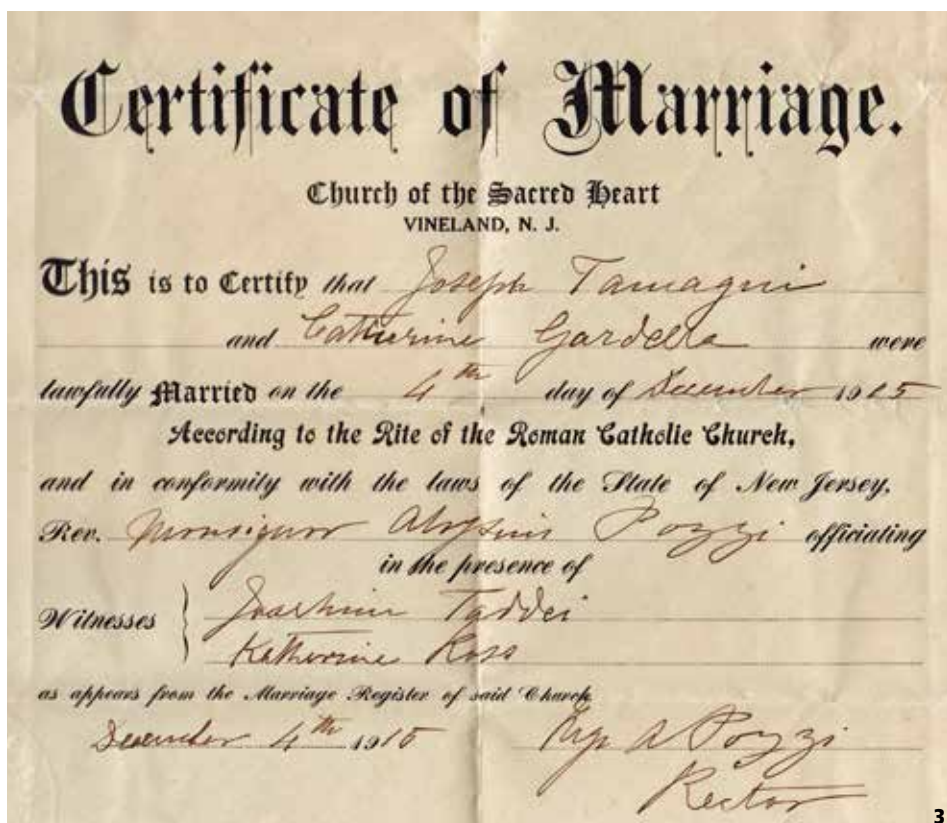 Certificate of Marriage.
Church of the Sacred Heart
VINELAND, N. J.
This is to Certify that Joseph Tamagni
and Catherine Gardella were
lawfully Married on the 4th day of December 1915
According to the Rite of the Roman Catholic Church,
and in conformity with the laws of the State of New Jersey,
Rev. Monsignor Aloysius Pozzi officiating
in the presence of
Witnesses Taddei
Katherine Ross
as appears from the Marriage Register of said Church
December 4th 1915
A Pozzi
Rector
3